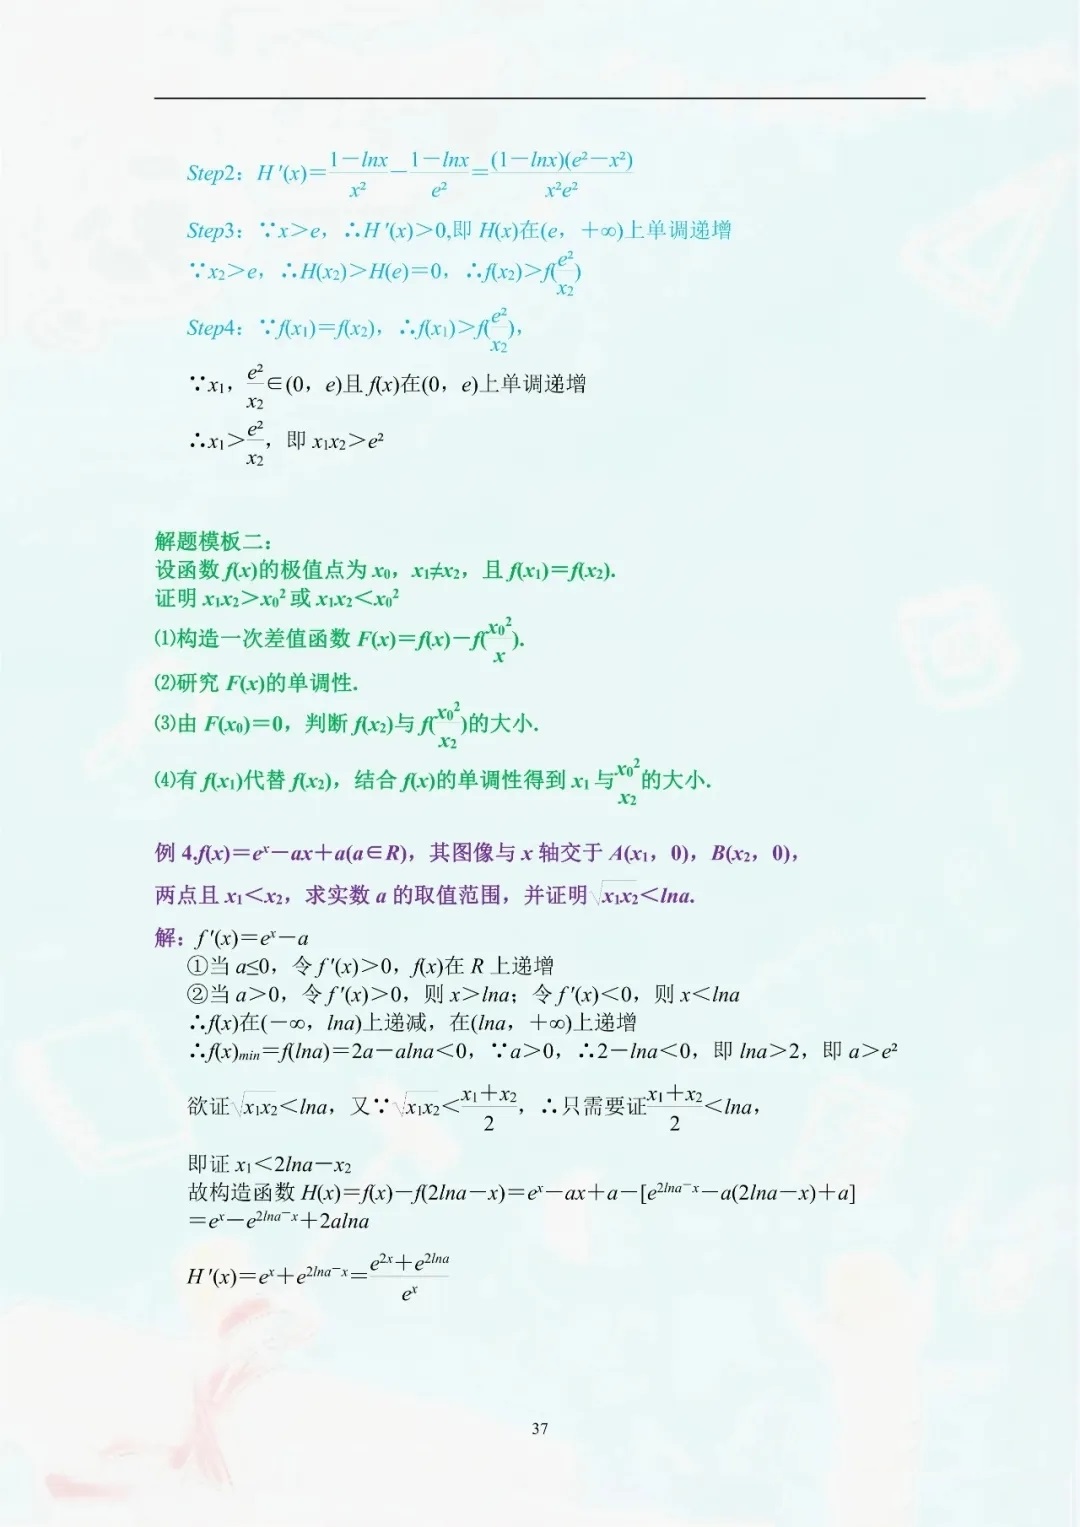 Step2：H ′(x)＝(1－lnx)/x²－(1－lnx)/e²＝(1－lnx)(e²－x²)/x²e²
Step3：∵x＞e，∴H ′(x)＞0,即 H(x)在(e，＋∞)上单调递增
∵x₂＞e，∴H(x₂)＞H(e)＝0，∴f(x₂)＞f(e²/x₂)
Step4：∵f(x₁)＝f(x₂)，∴f(x₁)＞f(e²/x₂)，
∵x₁，e²/x₂∈(0，e)且 f(x)在(0，e)上单调递增
∴x₁＞e²/x₂，即 x₁x₂＞e²
解题模板二：
设函数 f(x)的极值点为 x₀，x₁≠x₂，且 f(x₁)＝f(x₂).
证明 x₁x₂＞x₀² 或 x₁x₂＜x₀²
⑴构造一次差值函数 F(x)＝f(x)－f(x₀²/x).
⑵研究 F(x)的单调性.
⑶由 F(x₀)＝0，判断 f(x₂)与 f(x₀²/x₂)的大小.
⑷有 f(x₁)代替 f(x₂)，结合 f(x)的单调性得到 x₁ 与 x₀²/x₂ 的大小.
例 4.f(x)＝eˣ－ax＋a(a∈R)，其图像与 x 轴交于 A(x₁，0)，B(x₂，0)，
两点且 x₁＜x₂，求实数 a 的取值范围，并证明√x₁x₂＜lna.
解：f ′(x)＝eˣ－a
①当 a≤0，令 f ′(x)＞0，f(x)在 R 上递增
②当 a＞0，令 f ′(x)＞0，则 x＞lna；令 f ′(x)＜0，则 x＜lna
∴f(x)在(－∞，lna)上递减，在(lna，＋∞)上递增
∴f(x)min＝f(lna)＝2a－alna＜0，∵a＞0，∴2－lna＜0，即 lna＞2，即 a＞e²
欲证√x₁x₂＜lna，又∵√x₁x₂＜(x₁＋x₂)/2，∴只需要证(x₁＋x₂)/2＜lna，
即证 x₁＜2lna－x₂
故构造函数 H(x)＝f(x)－f(2lna－x)＝eˣ－ax＋a－[e^(2lna－x)－a(2lna－x)＋a]
＝eˣ－e^(2lna－x)＋2alna
H ′(x)＝eˣ＋e^(2lna－x)＝(e^(2x)＋e^(2lna))/eˣ
37